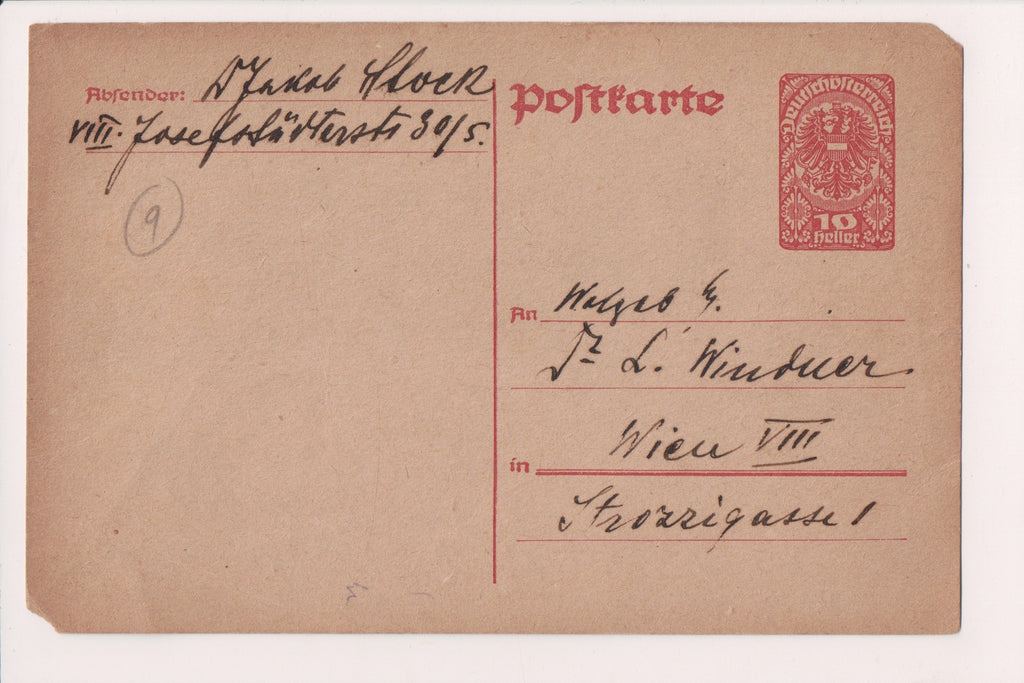 Absender: Dr Jakob Stock
VIII. Josefstädterstr 30/5.
9
Postkarte
Deutschösterreich
10
Heller
An
Dr L. Windner
in Wien VIII
Strozzigasse 1